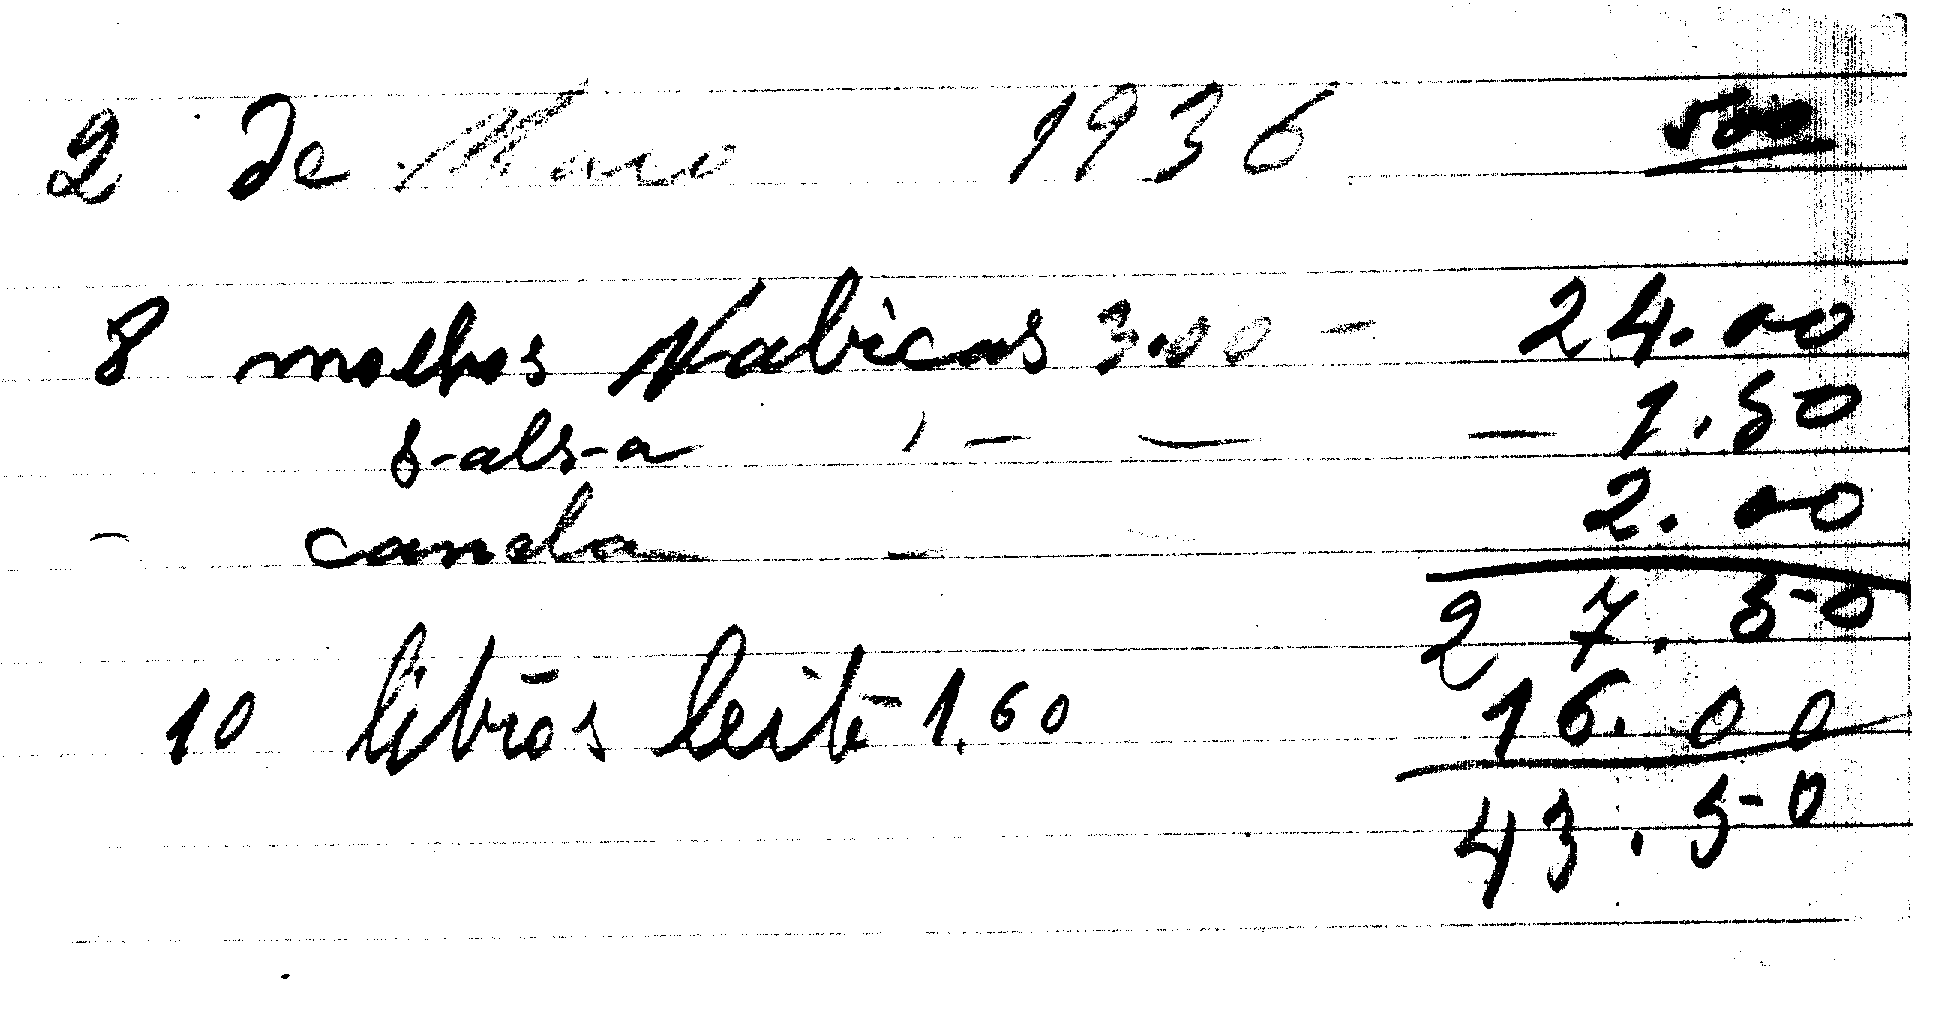 2 de Maio 1936 500
8 molhos Nabicas 3.00 - 24.00
salsa - - - 1.50
- canela - 2.00
27.50
10 litros leite 1.60 16.00
43.50